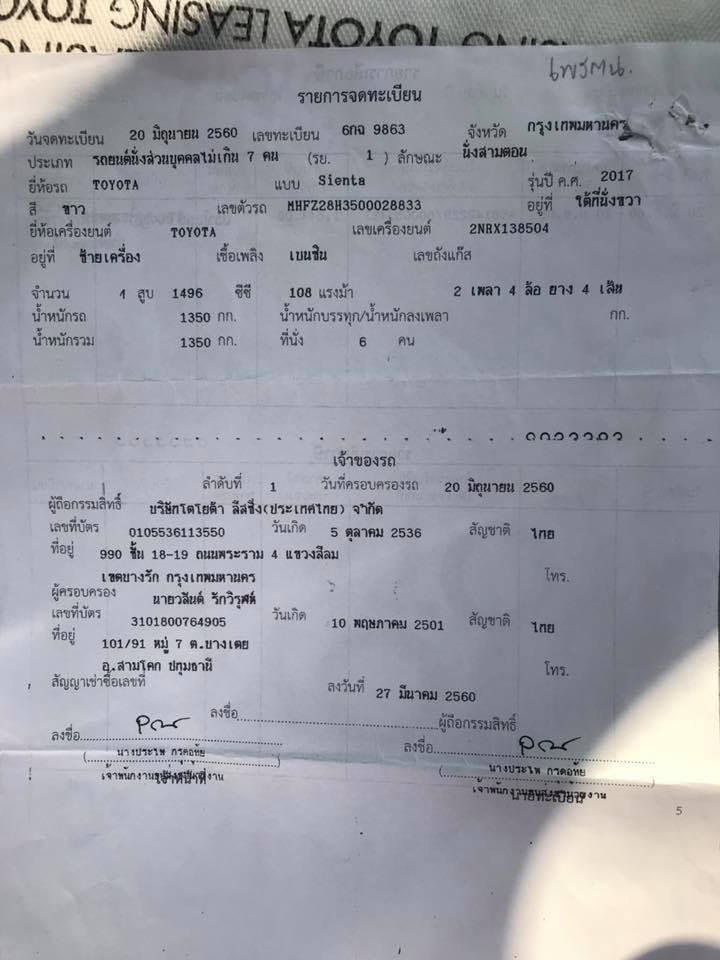 SING TOYOTA LEASING TOYO
รายการจดทะเบียน
วันจดทะเบียน 20 มิถุนายน 2560 เลขทะเบียน 6กฉ 9863 จังหวัด กรุงเทพมหานคร
ประเภท รถยนต์นั่งส่วนบุคคลไม่เกิน 7 คน (รย. 1 ) ลักษณะ นั่งสามตอน
ยี่ห้อรถ TOYOTA แบบ Sienta รุ่นปี ค.ศ. 2017
สี ขาว เลขตัวรถ MHFZ28H3500028833 อยู่ที่ ใต้ที่นั่งขวา
ยี่ห้อเครื่องยนต์ TOYOTA เลขเครื่องยนต์ 2NRX138504
อยู่ที่ ซ้ายเครื่อง เชื้อเพลิง เบนซิน เลขถังแก๊ส
จำนวน 4 สูบ 1496 ซีซี 108 แรงม้า 2 เพลา 4 ล้อ ยาง 4 เส้น
น้ำหนักรถ 1350 กก. น้ำหนักบรรทุก/น้ำหนักลงเพลา กก.
น้ำหนักรวม 1350 กก. ที่นั่ง 6 คน
เจ้าของรถ
ลำดับที่ 1 วันที่ครอบครองรถ 20 มิถุนายน 2560
ผู้ถือกรรมสิทธิ์ บริษัทโตโยต้า ลีสซิ่ง(ประเทศไทย) จำกัด
เลขที่บัตร 0105536113550 วันเกิด 5 ตุลาคม 2536 สัญชาติ ไทย
ที่อยู่ 990 ชั้น 18-19 ถนนพระราม 4 แขวงสีลม
เขตบางรัก กรุงเทพมหานคร โทร.
ผู้ครอบครอง นายวสันต์ รักวิรุฬห์
เลขที่บัตร 3101800764905 วันเกิด 10 พฤษภาคม 2501 สัญชาติ ไทย
ที่อยู่ 101/91 หมู่ 7 ต.บางเตย
อ.สามโคก ปทุมธานี โทร.
สัญญาเช่าซื้อเลขที่ ลงวันที่ 27 มีนาคม 2560
ลงชื่อ ผู้ถือกรรมสิทธิ์
ลงชื่อ ลงชื่อ
นางประไพ นางประไพ
เจ้าหน้าที่ นายทะเบียน
5